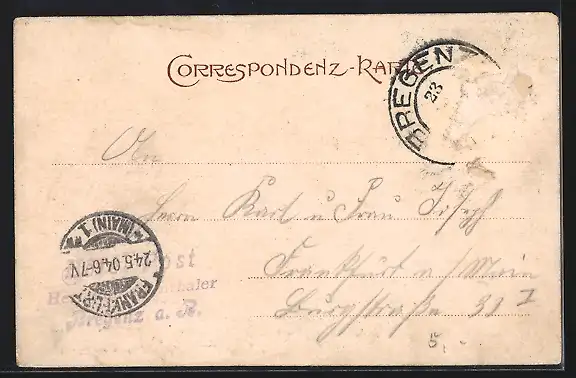 CORRESPONDENZ-KARTE
BREGENZ
23
An
Herrn Karl u Frau Josef
Frankfurt a/Main
Burgstraße 31 I
FRANKFURT
(MAIN) 1.
24.5.04.6-7V.
Post
thaler
Bregenz a. B.
5.